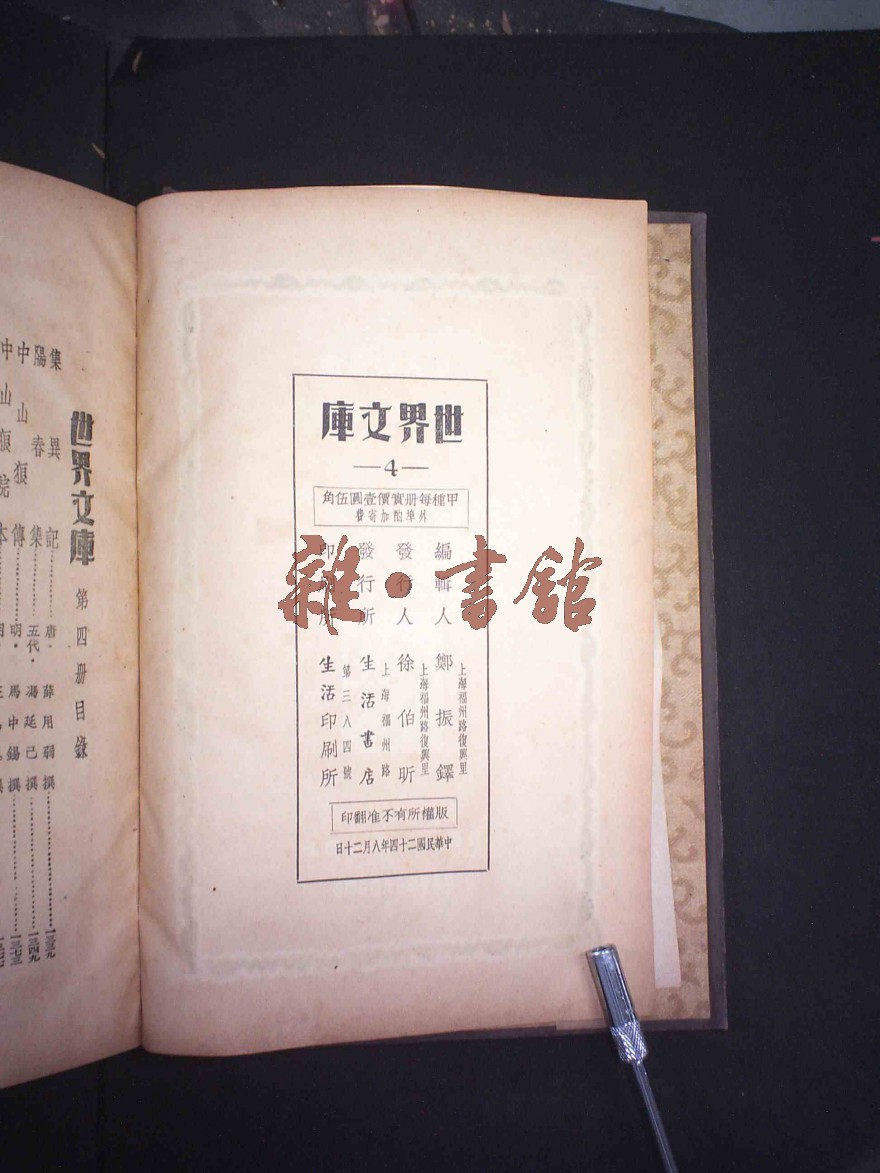 世界文庫
—4—
甲種每册實價壹圓伍角
外埠酌加寄費
編輯人 鄭振鐸
上海福州路復興里
發行人 徐伯昕
上海福州路復興里
發行所 生活書店
上海福州路
第三八四號
印刷所 生活印刷所
版權所有不准翻印
中華民國二十四年八月二十日
雜·書館
世界文庫 第四册目錄
集異記 唐·薛用弱撰 一三三九
陽春集 五代·馮延己撰 一三四九
中山狼傳 明·馬中錫撰 一三七三
中山狼院本